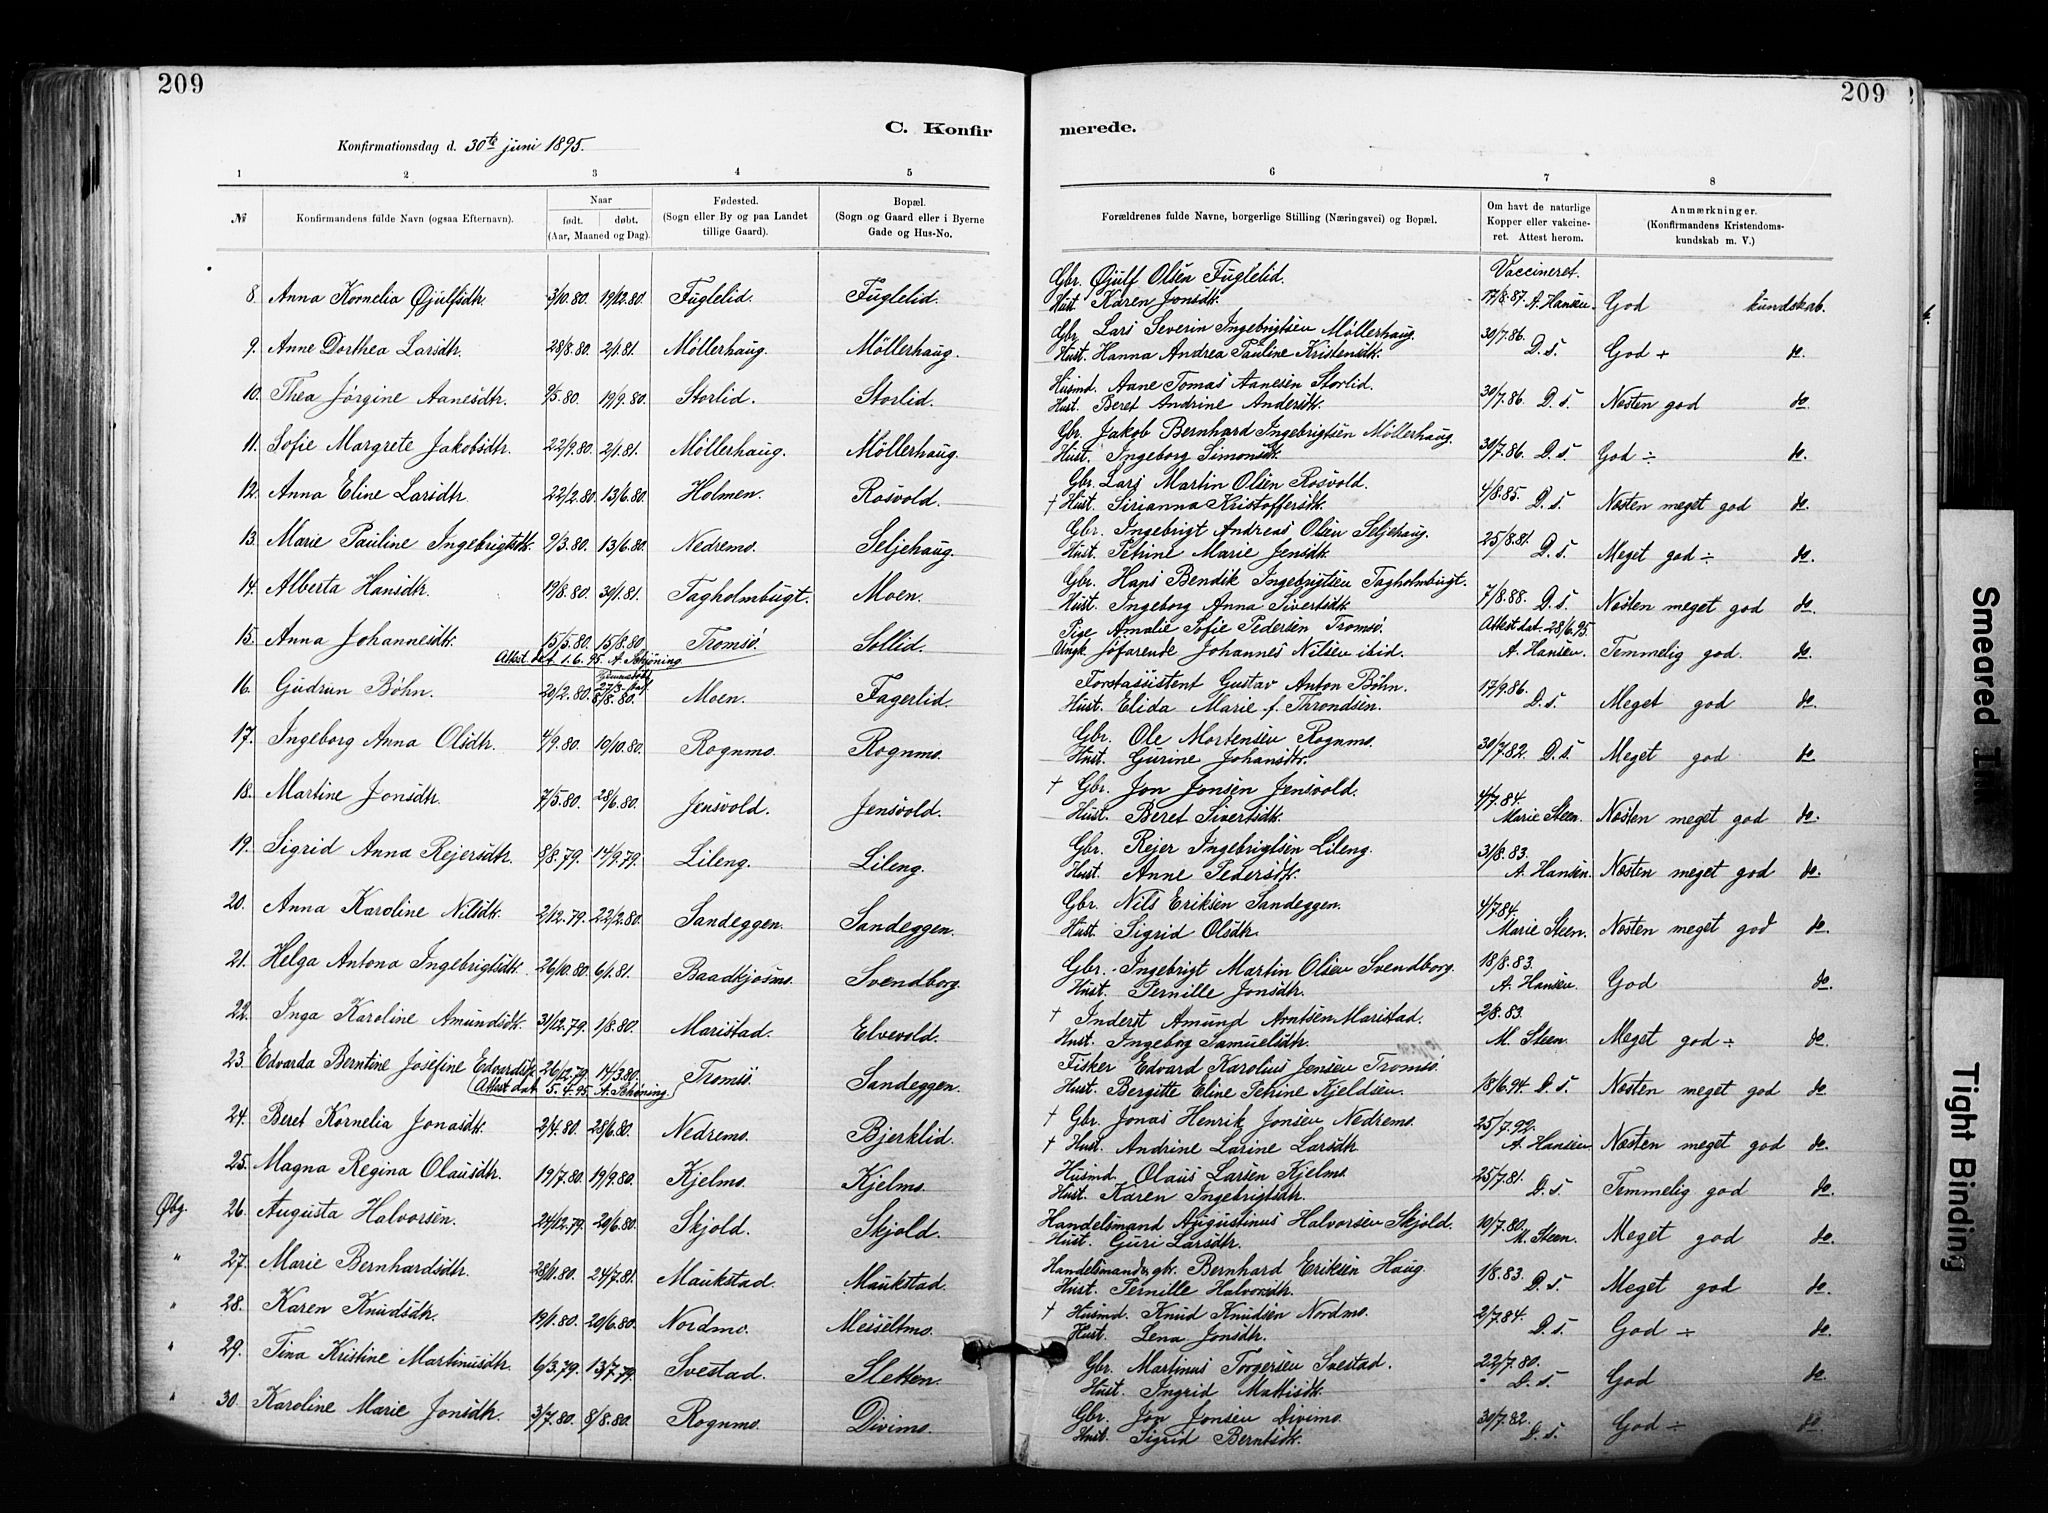 209
209
C. Konfir
merede.
Konfirmationsdag d. 30te juni 1895.
1 2 3 4 5 6 7 8
№
Konfirmandens fulde Navn (ogsaa Efternavn).
Naar
født. døbt.
(Aar, Maaned og Dag).
Fødested.
(Sogn eller By og paa Landet
tillige Gaard).
Bopæl.
(Sogn og Gaard eller i Byerne
Gade og Hus-No.
Forældrenes fulde Navne, borgerlige Stilling (Næringsvei) og Bopæl.
Om havt de naturlige
Kopper eller vakcine-
ret. Attest herom.
Anmærkninger.
(Konfirmandens Kristendoms-
kundskab m. V.)
Gbr. Øjulf Olsen Fuglelid. Vaccineret.
8. Anna Kornelia Øjulfsdtr. 3/10.80. 19/12.80. Fuglelid. Fuglelid. Hust. Karen Jonsdtr. 17/8.87. A. Hansen. God kundskab.
Gbr. Lars Severin Ingebrigtsen Møllerhaug. 30/7.86.
9. Anne Dorthea Larsdtr. 28/8.80. 2/1.81. Møllerhaug. Møllerhaug. Hust. Hanna Andrea Pauline Kristensdtr. D. s. God + do.
Husmd. Aane Tomas Aanesen Storlid.
10. Thea Jørgine Aanesdtr. 9/5.80. 19/9.80. Storlid. Storlid. Hust. Beret Andrine Andersdtr. 30/7.86. D. s. Næsten god do.
Gbr. Jakob Bernhard Ingebrigtsen Møllerhaug.
11. Sofie Margrete Jakobsdtr. 22/9.80. 2/1.81. Møllerhaug. Møllerhaug. Hust. Ingeborg Simonsdtr. 30/7.86. D. s. God ÷ do.
Gbr. Lars Martin Olsen Rosvold.
12. Anna Eline Larsdtr. 22/2.80. 13/6.80. Holmen. Rosvold. † Hust. Sirianna Kristoffersdtr. 4/8.85. D. s. Næsten meget god do.
Gbr. Ingebrigt Andreas Olsen Seljehaug.
13. Marie Pauline Ingebrigtsdtr. 9/3.80. 13/6.80. Nedremo. Seljehaug. Hust. Petrine Marie Jensdtr. 25/8.81. D. s. Meget god ÷ do.
Gbr. Hans Bendik Ingebrigtsen Tagholmbugt.
14. Alberta Hansdtr. 19/8.80. 30/1.81. Tagholmbugt. Moen. Hust. Ingeborg Anna Sivertsdtr. 7/8.88. D. s. Næsten meget god do.
Pige Amalie Sofie Pedersen Tromsø. Attest dat. 28/6.95.
15. Anna Johannesdtr. 15/5.80. 15/8.80 Tromsø. Sollid. Ungk. Søfarende Johannes Nilsen ibid. A. Hansen. Temmelig god. do.
Attest dat. 1.6.95. A. Schøning.
Forstassistent Gustav Anton Bøhn.
16. Gudrun Bøhn. 20/2.80. 27/3. 8/8.80. Moen. Fagerlid. Hust. Elida Marie f. Throndsen. 17/9.86. D. s. Meget god do.
Gbr. Ole Mortensen Rognmo.
17. Ingeborg Anna Olsdtr. 4/9.80. 10/10.80. Rognmo. Rognmo. Hust. Gurine Johansdtr. 30/7.82. D. s. Meget god do.
† Gbr. Jon Jonsen Jensvold. 4/7.84.
18. Martine Jonsdtr. 7/5.80. 28/6.80. Jensvold. Jensvold. Hust. Beret Sivertsdtr. Marie Steen. Næsten meget god do.
Gbr. Rejer Ingebrigtsen Lileng. 31/8.83.
19. Sigrid Anna Rejersdtr. 8/8.79. 14/9.79. Lileng. Lileng. Hust. Anne Pedersdtr. A. Hansen. Næsten meget god do.
Gbr. Nils Eriksen Sandeggen. 4/7.84.
20. Anna Karoline Nilsdtr. 2/12.79. 22/2.80. Sandeggen. Sandeggen. Hust. Sigrid Olsdtr. Marie Steen. Næsten meget god do.
Gbr. Ingebrigt Martin Olsen Svendborg. 18/8.83.
21. Helga Antona Ingebrigtsdtr. 26/10.80. 6/1.81. Baadkjosmo. Svendborg. Hust. Pernille Jonsdtr. A. Hansen. God do.
† Inderst Amund Arntsen Maristad. 2/8.83.
22. Inga Karoline Amundsdtr. 31/12.79. 1/8.80. Maristad. Elvevold. Hust. Ingeborg Samuelsdtr. M. Steen. Meget god ÷ do.
Fisker Edvard Karolius Jensen Tromsø.
23. Edvarda Berntine Josefine Edvardsdtr. 26/12.79. 14/3.80. Tromsø Sandeggen. Hust. Bergitte Eline Petrine Kjeldsen. 18/6.94. D. s. Næsten meget god do.
(Attest dat. 5.4.95. A. Schøning.)
† Gbr. Jonas Henrik Jonsen Nedremo. 25/7.92.
24. Beret Kornelia Jonasdtr. 2/4.80. 28/6.80. Nedremo. Bjerklid. † Hust. Andrine Larine Larsdtr. A. Hansen. Næsten meget god do.
Husmd. Olaus Larsen Kjelmo. 25/7.81.
25. Magna Regina Olausdtr. 19/7.80. 19/9.80. Kjelmo. Kjelmo. Hust. Karen Ingebrigtsdtr. D. s. Temmelig god do.
Handelsmand Augustinus Halvorsen Skjold. 10/7.80.
Øbg. 26. Augusta Halvorsen. 24/12.79. 20/6.80. Skjold. Skjold. Hust. Guri Larsdtr. M. Steen. Meget god do.
Handelsmandsgk. Bernhard Eriksen Haug. 1/8.83.
" 27. Marie Bernhardsdtr. 28/11.80. 24/7.81. Maukstad. Maukstad. Hust. Pernille Halvorsdtr. D. s. Meget god do.
† Husmd. Knud Knudsen Nordmo. 2/7.84.
" 28. Karen Knudsdtr. 19/1.80. 20/6.80. Nordmo. Meiseltmo. Hust. Lena Jonsdtr. D. s. God ÷ do.
Gbr. Martinus Torgersen Svestad. 22/7.80.
" 29. Tina Kristine Martinusdtr. 6/3.79. 13/7.79. Svestad. Sletten. Hust. Ingrid Mattisdtr. D. s. God do.
Gbr. Jon Jonsen Divimo. 30/7.82.
" 30. Karoline Marie Jonsdtr. 3/7.80. 8/8.80. Rognmo. Divimo. Hust. Sigrid Berntsdtr. D. s. God ÷ do.
Smeared Ink
Tight Binding